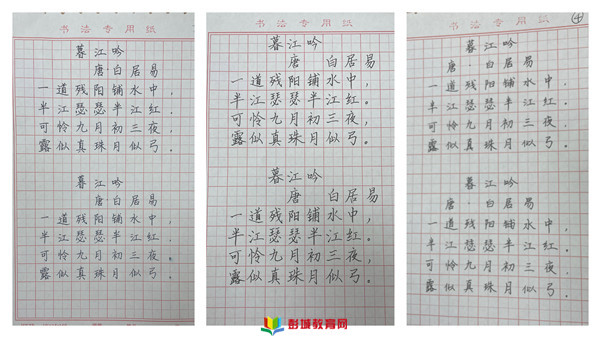 书法专用纸
暮江吟
唐 白居易
一道残阳铺水中，
半江瑟瑟半江红。
可怜九月初三夜，
露似真珠月似弓。
暮江吟
唐白居易
一道残阳铺水中，
半江瑟瑟半江红。
可怜九月初三夜，
露似真珠月似弓。
书法专用纸
暮江吟
唐 白居易
一道残阳铺水中，
半江瑟瑟半江红。
可怜九月初三夜，
露似真珠月似弓。
暮江吟
唐 白居易
一道残阳铺水中，
半江瑟瑟半江红。
可怜九月初三夜，
露似真珠月似弓。
书法专用纸
暮江吟
唐 白居易
一道残阳铺水中，
半江瑟瑟半江红。
可怜九月初三夜，
露似真珠月似弓。
暮江吟
唐 白居易
一道残阳铺水中，
半江瑟瑟半江红。
可怜九月初三夜，
露似真珠月似弓。
彭城教育网